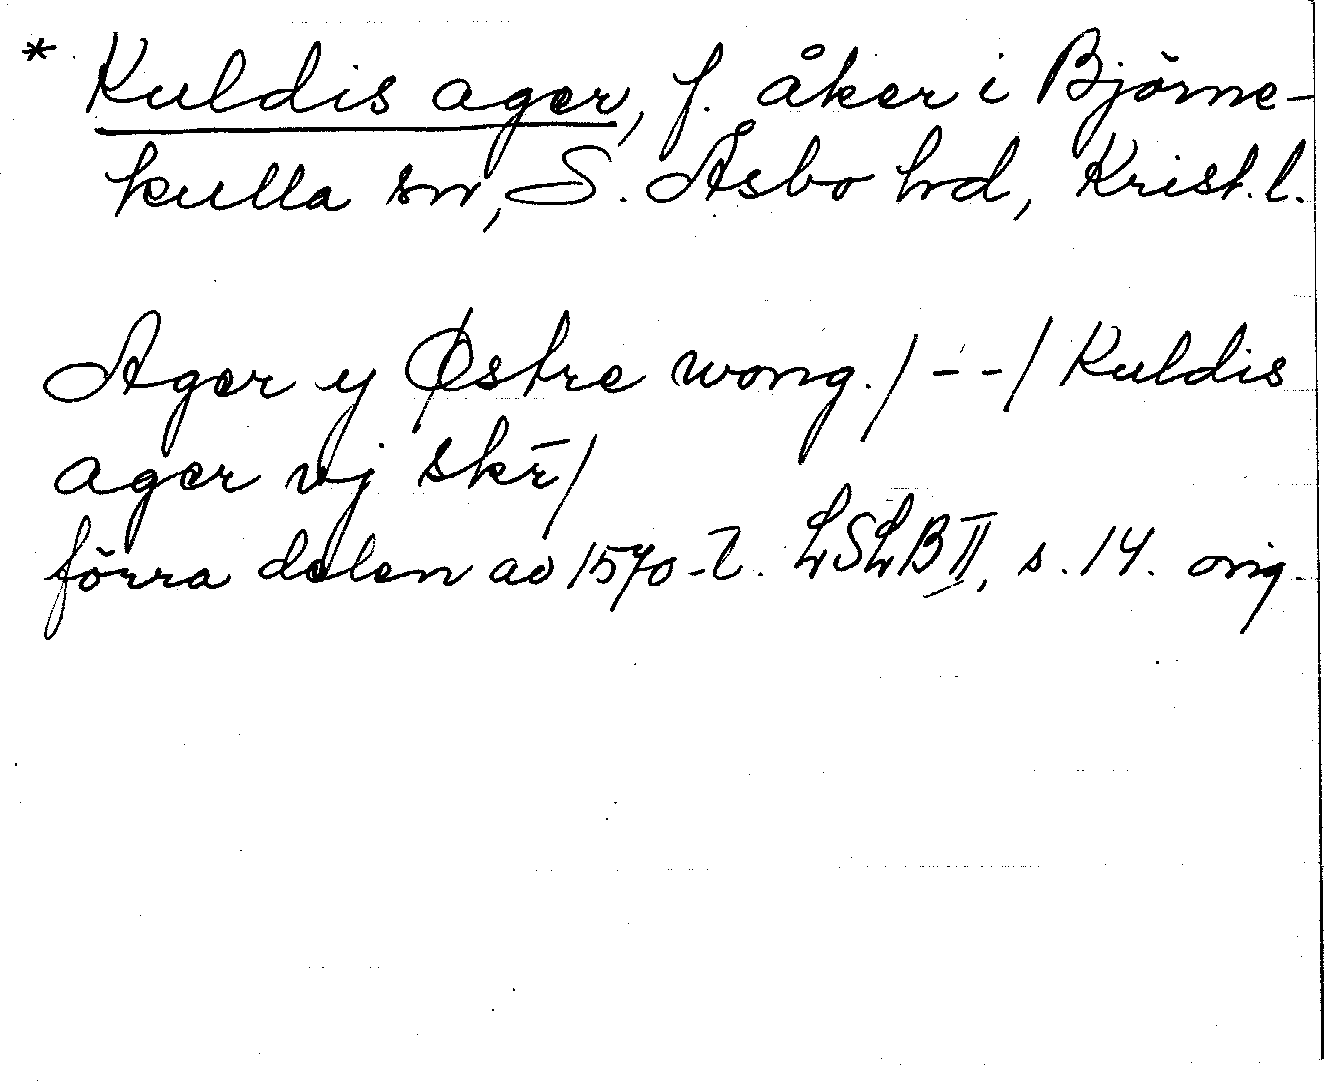 * Kuldis ager, f. åker i Björne-
kulla sn, S. Åsbo hd, Krist. l.
Ager y Østre wong. / - - / Kuldis
ager vj skr̄ /
förra delen av 1570-t. LSLB II, s. 14. orig.